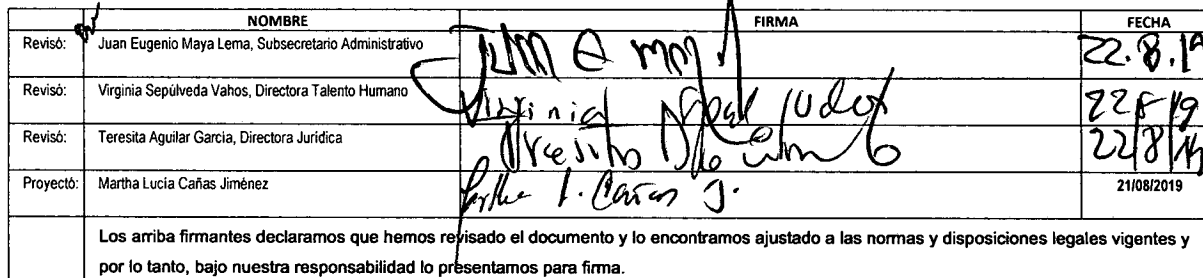 NOMBRE FIRMA FECHA
Revisó: Juan Eugenio Maya Lema, Subsecretario Administrativo 22.8.19
Revisó: Virginia Sepúlveda Vahos, Directora Talento Humano Virginia 22-8-19
Revisó: Teresita Aguilar García, Directora Jurídica Teresita 22/8/19
Proyectó: Martha Lucía Cañas Jiménez Martha L. Cañas J. 21/08/2019
Los arriba firmantes declaramos que hemos revisado el documento y lo encontramos ajustado a las normas y disposiciones legales vigentes y
por lo tanto, bajo nuestra responsabilidad lo presentamos para firma.